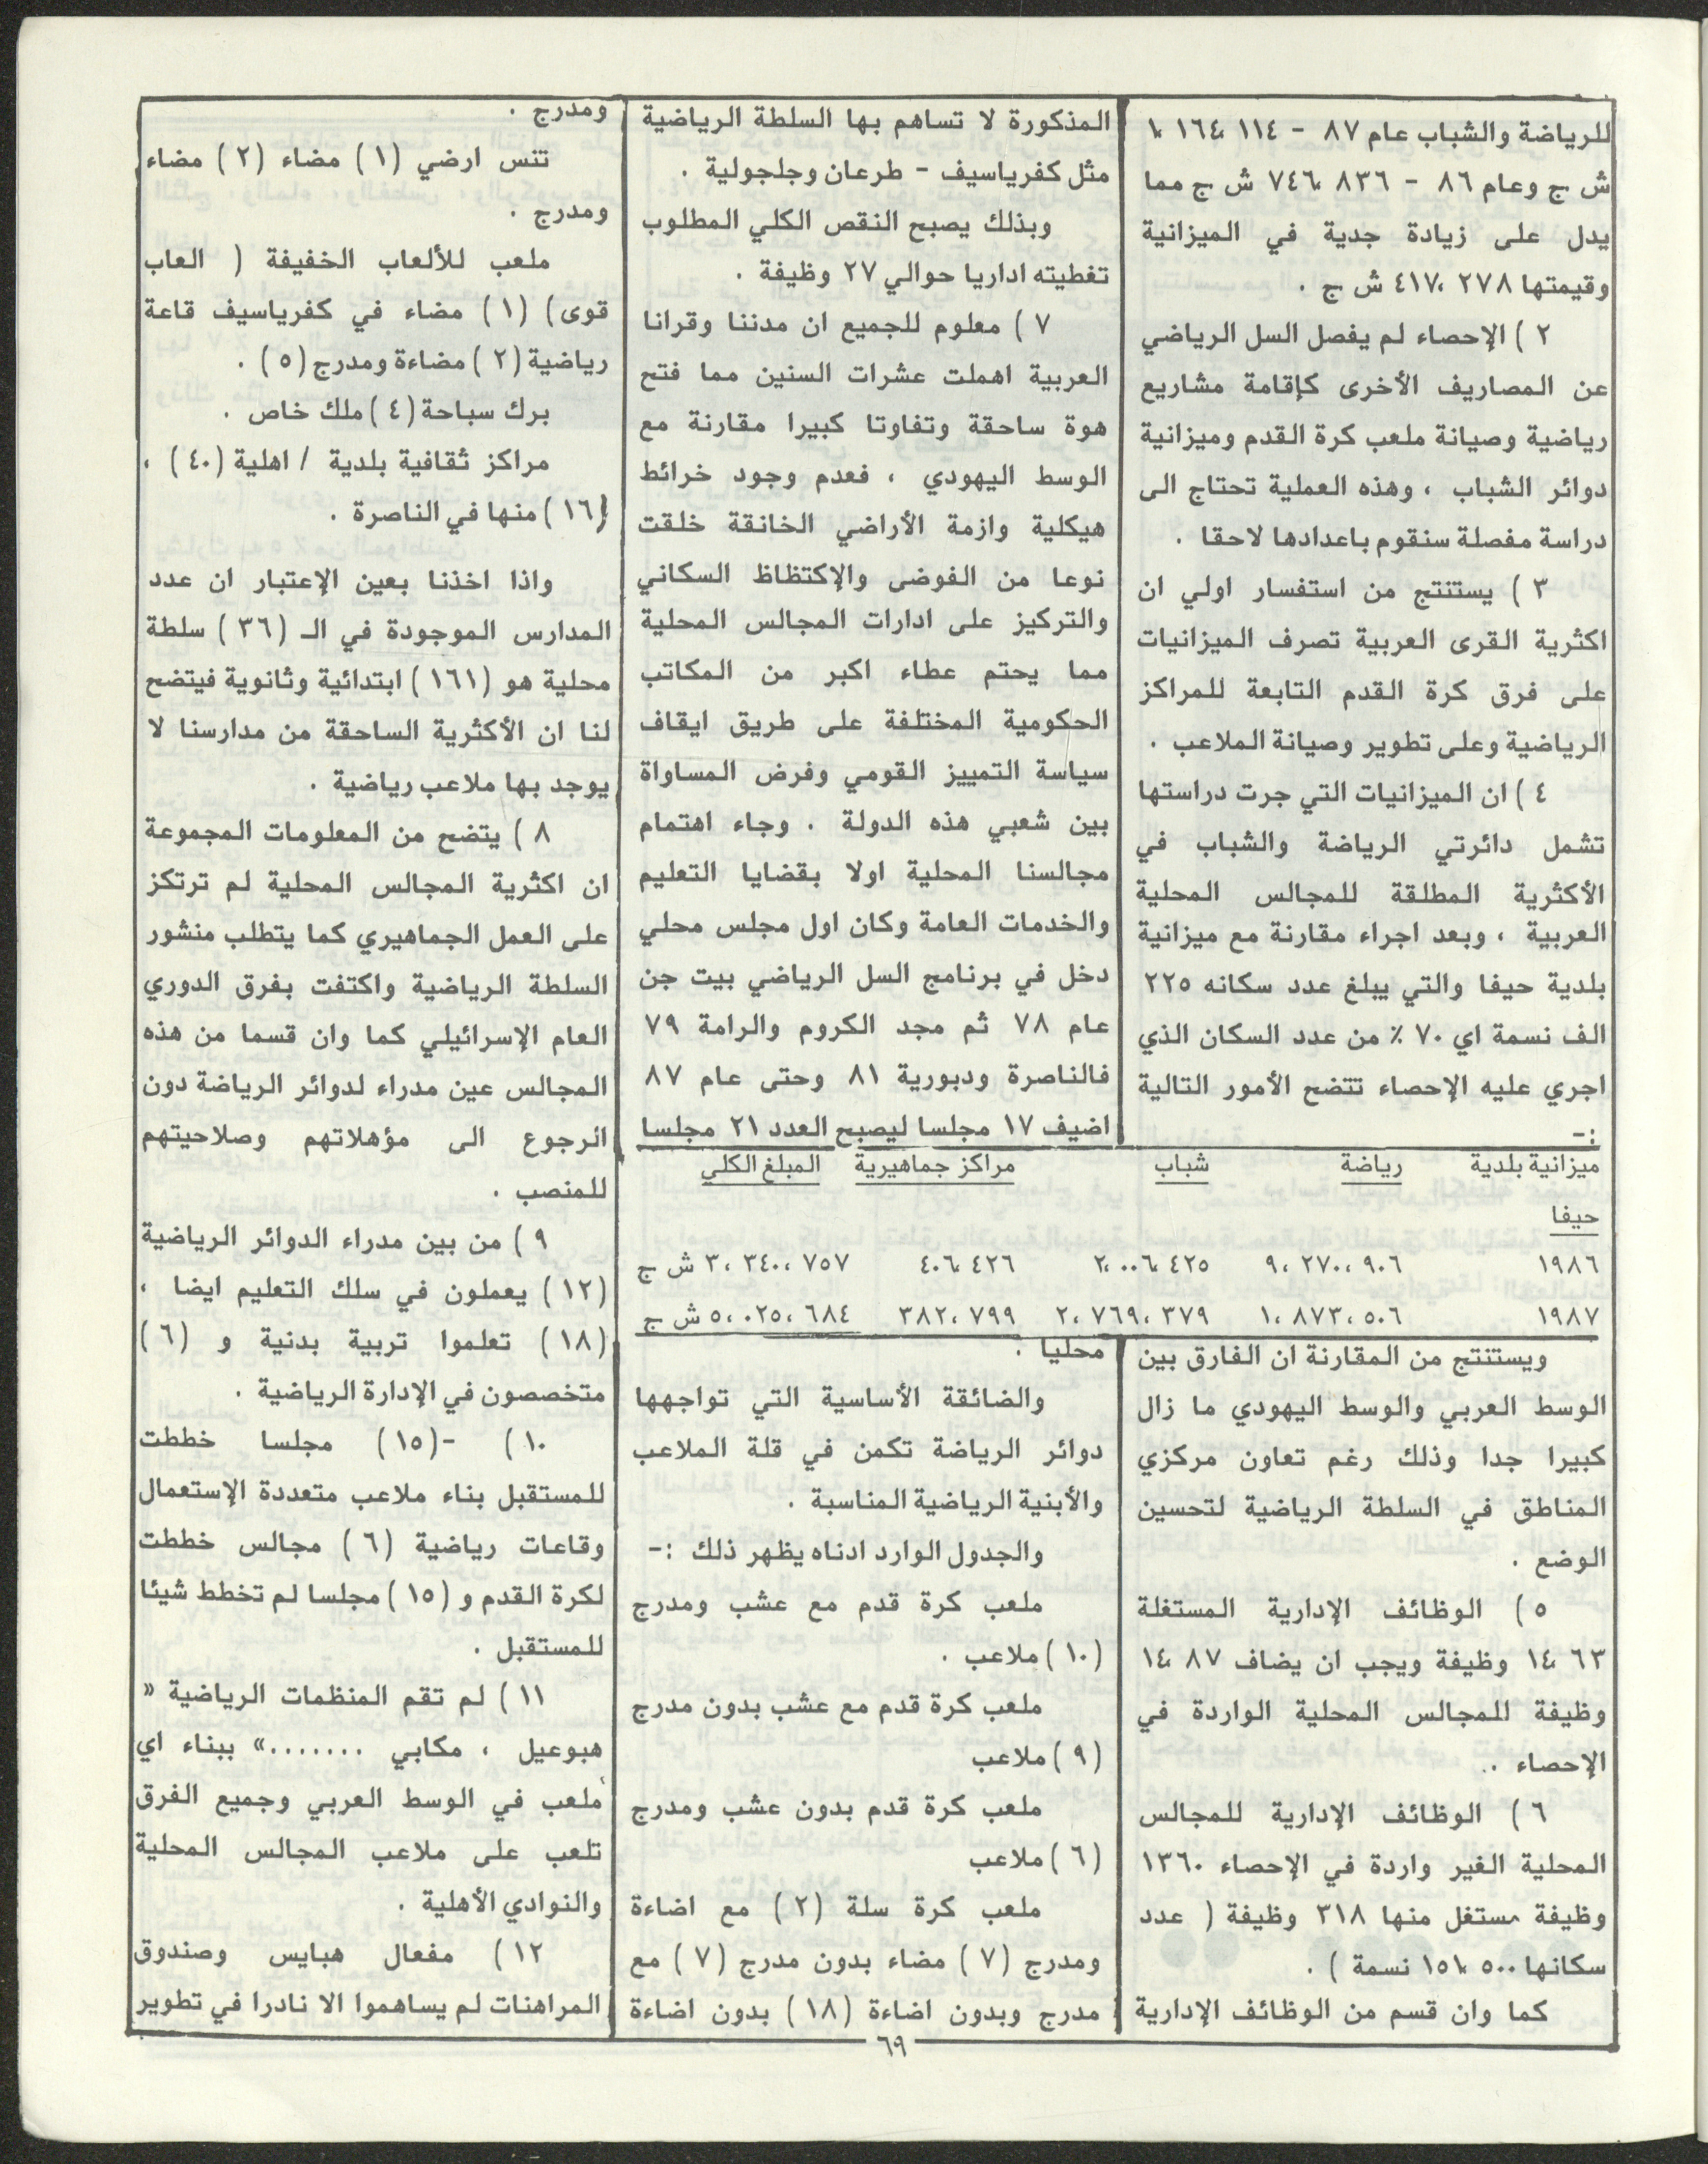 للرياضة والشباب عام ٨٧ - ١١٤ ،١٦٤ ،١
ش ج وعام ٨٦ - ٨٣٦ ،٧٤٦ ش ج مما
يدل على زيادة جدية في الميزانية
وقيمتها ٢٧٨ ،٤١٧ ش ج .
٢ ) الإحصاء لم يفصل السل الرياضي
عن المصاريف الأخرى كإقامة مشاريع
رياضية وصيانة ملعب كرة القدم وميزانية
دوائر الشباب ، وهذه العملية تحتاج الى
دراسة مفصلة سنقوم باعدادها لاحقا .
٣ ) يستنتج من استفسار اولي ان
اكثرية القرى العربية تصرف الميزانيات
على فرق كرة القدم التابعة للمراكز
الرياضية وعلى تطوير وصيانة الملاعب .
٤ ) ان الميزانيات التي جرت دراستها
تشمل دائرتي الرياضة والشباب في
الأكثرية المطلقة للمجالس المحلية
العربية ، وبعد اجراء مقارنة مع ميزانية
بلدية حيفا والتي يبلغ عدد سكانه ٢٢٥
الف نسمة اي ٧٠ ٪ من عدد السكان الذي
اجري عليه الإحصاء تتضح الأمور التالية
:-
المذكورة لا تساهم بها السلطة الرياضية
مثل كفرياسيف - طرعان وجلجولية .
وبذلك يصبح النقص الكلي المطلوب
تغطيته اداريا حوالي ٢٧ وظيفة .
٧ ) معلوم للجميع ان مدننا وقرانا
العربية اهملت عشرات السنين مما فتح
هوة ساحقة وتفاوتا كبيرا مقارنة مع
الوسط اليهودي ، فعدم وجود خرائط
هيكلية وازمة الأراضي الخانقة خلقت
نوعا من الفوضى والإكتظاظ السكاني
والتركيز على ادارات المجالس المحلية
مما يحتم عطاء اكبر من المكاتب
الحكومية المختلفة على طريق ايقاف
سياسة التمييز القومي وفرض المساواة
بين شعبي هذه الدولة . وجاء اهتمام
مجالسنا المحلية اولا بقضايا التعليم
والخدمات العامة وكان اول مجلس محلي
دخل في برنامج السل الرياضي بيت جن
عام ٧٨ ثم مجد الكروم والرامة ٧٩
فالناصرة ودبورية ٨١ وحتى عام ٨٧
اضيف ١٧ مجلسا ليصبح العدد ٢١ مجلسا
ميزانية بلدية رياضة شباب مراكز جماهيرية المبلغ الكلي
حيفا
١٩٨٦ ٩٠٦ ،٢٧٠ ،٩ ٤٢٥ ،٠٠٦ ،٢ ٤٢٦ ،٤٠٦ ٧٥٧ ،٣٤٠ ،٣ ش ج
١٩٨٧ ٥٠٦ ،٨٧٣ ،١ ٣٧٩ ،٧٦٩ ،٢ ٧٩٩ ،٣٨٢ ٦٨٤ ،٠٢٥ ،٥ ش ج
ويستنتج من المقارنة ان الفارق بين
الوسط العربي والوسط اليهودي ما زال
كبيرا جدا وذلك رغم تعاون مركزي
المناطق في السلطة الرياضية لتحسين
الوضع .
٥ ) الوظائف الإدارية المستغلة
٦٣ ،١٤ وظيفة ويجب ان يضاف ٨٧ ،١٤
وظيفة للمجالس المحلية الواردة في
الإحصاء .
٦ ) الوظائف الإدارية للمجالس
المحلية الغير واردة في الإحصاء ١٣٦٠
وظيفة مستغل منها ٣١٨ وظيفة ( عدد
سكانها ٥٠٠ ،١٥١ نسمة ) .
كما وان قسم من الوظائف الإدارية
محليا .
والضائقة الأساسية التي تواجهها
دوائر الرياضة تكمن في قلة الملاعب
والأبنية الرياضية المناسبة .
والجدول الوارد ادناه يظهر ذلك :-
ملعب كرة قدم مع عشب ومدرج
(١٠) ملاعب .
ملعب كرة قدم مع عشب بدون مدرج
(٩) ملاعب
ملعب كرة قدم بدون عشب ومدرج
(٦) ملاعب
ملعب كرة سلة (٢) مع اضاءة
ومدرج (٧) مضاء بدون مدرج (٧) مع
مدرج وبدون اضاءة (١٨) بدون اضاءة
ومدرج .
تنس ارضي (١) مضاء (٢) مضاء
ومدرج .
ملعب للألعاب الخفيفة ( العاب
قوى) (١) مضاء في كفرياسيف قاعة
رياضية (٢) مضاءة ومدرج (٥) .
برك سباحة (٤) ملك خاص .
مراكز ثقافية بلدية / اهلية (٤٠) ،
(١٦) منها في الناصرة .
واذا اخذنا بعين الإعتبار ان عدد
المدارس الموجودة في الـ (٣٦) سلطة
محلية هو (١٦١) ابتدائية وثانوية فيتضح
لنا ان الأكثرية الساحقة من مدارسنا لا
يوجد بها ملاعب رياضية .
٨ ) يتضح من المعلومات المجموعة
ان اكثرية المجالس المحلية لم ترتكز
على العمل الجماهيري كما يتطلب منشور
السلطة الرياضية واكتفت بفرق الدوري
العام الإسرائيلي كما وان قسما من هذه
المجالس عين مدراء لدوائر الرياضة دون
الرجوع الى مؤهلاتهم وصلاحيتهم
للمنصب .
٩ ) من بين مدراء الدوائر الرياضية
(١٢) يعملون في سلك التعليم ايضا ،
(١٨) تعلموا تربية بدنية و (٦)
متخصصون في الإدارة الرياضية .
١٠) -(١٥) مجلسا خططت
للمستقبل بناء ملاعب متعددة الإستعمال
وقاعات رياضية (٦) مجالس خططت
لكرة القدم و (١٥) مجلسا لم تخطط شيئا
للمستقبل .
١١) لم تقم المنظمات الرياضية «
هبوعيل ، مكابي .......» ببناء اي
ملعب في الوسط العربي وجميع الفرق
تلعب على ملاعب المجالس المحلية
والنوادي الأهلية .
١٢) مفعال هبايس وصندوق
المراهنات لم يساهموا الا نادرا في تطوير
٦٩